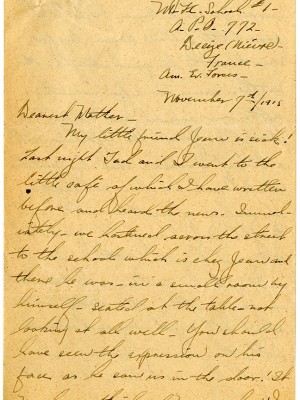 School #1-
A.P.O. 772
Decize (Nièvre)
France
Am. E. Forces
November 9th/1918
Dearest Mother-
My little friend Jean is sick!
Last night Tad and I went to the
little café of which I have written
before and heard the news. Immed-
iately we hastened across the street
to the school which is chez Jean and
there he was - in a small room by
himself - seated at the table - not
looking at all well - You should
have seen the expression on his
face as he saw us in the door! It